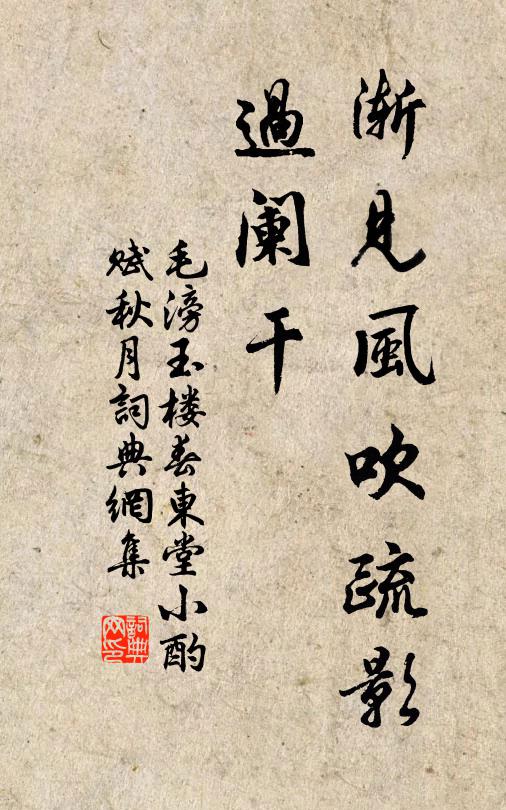 漸見風吹疏影
過阑干
毛滂玉楼春東堂小酌
賦秋月詞典網集
詞典
网印